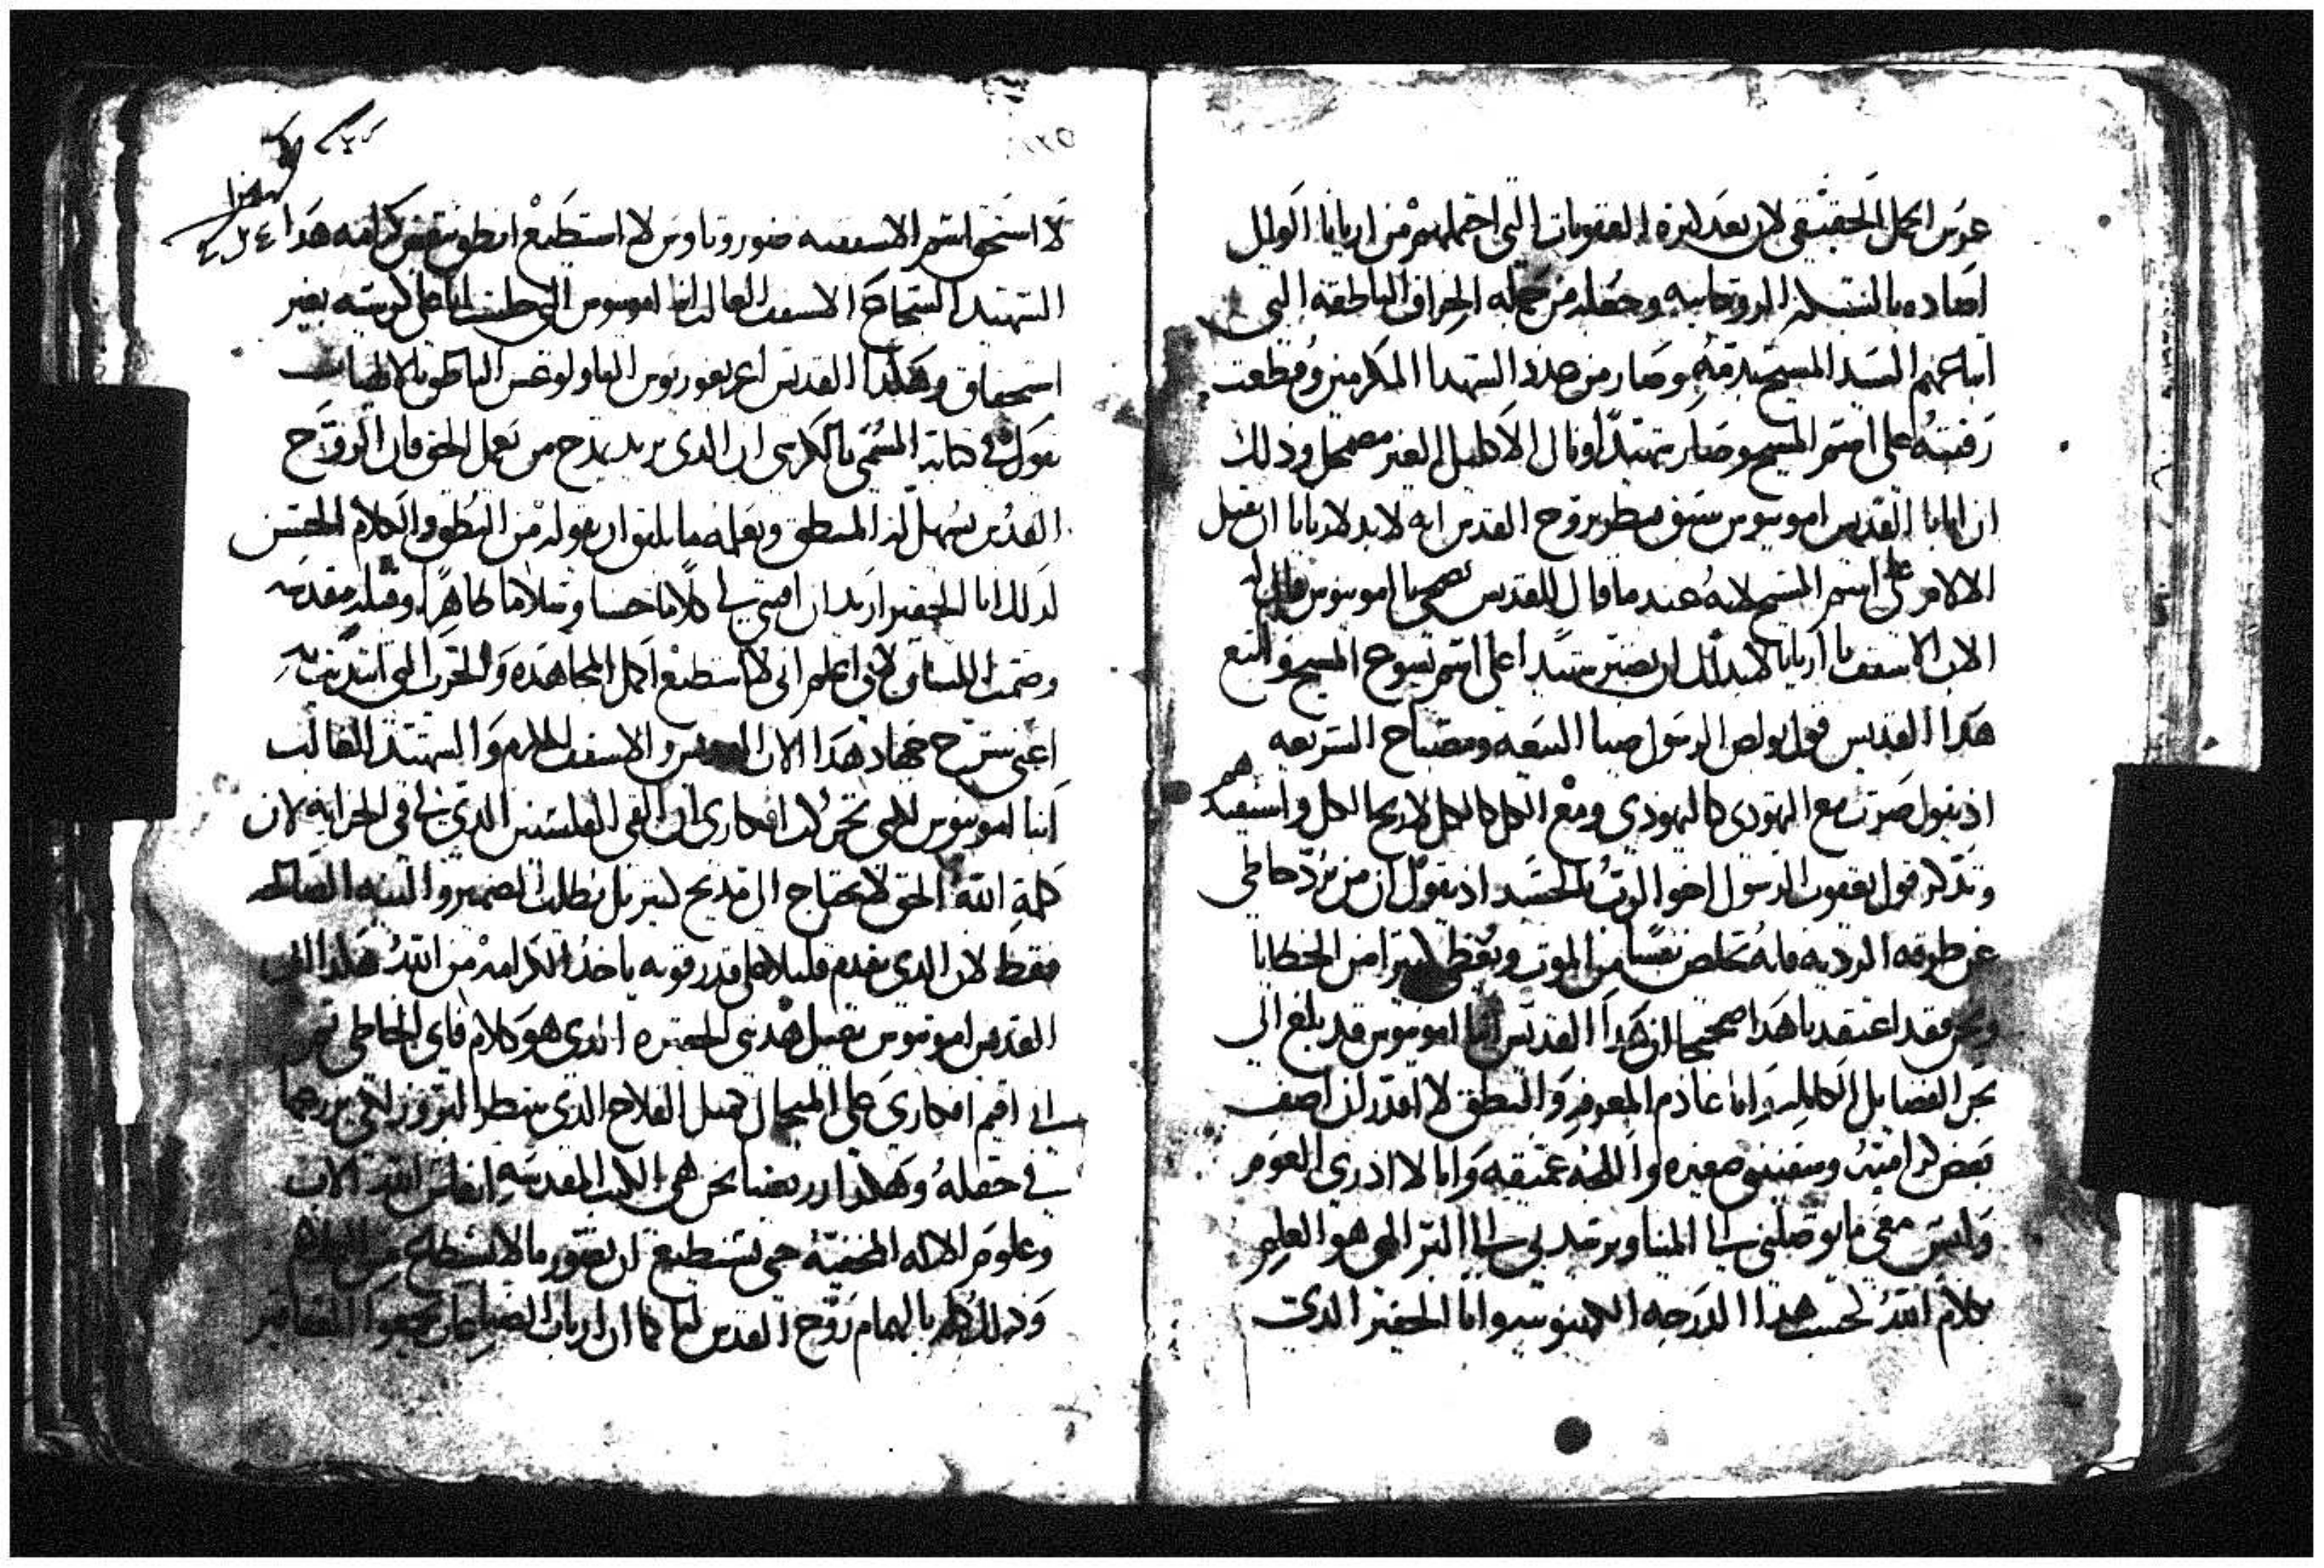 عرس الحمل الحقيقي لان بعد كثرة العقوبات التي احتملهم من اريانا الوالي
اصعاده بالسنبلة الروحانيه وجعله من جملة الخراف الناطقه التي
ابتاعهم السيد المسيح بدمه وصار من عدد الشهدا المكرمين وقطعت
رقبته على اسم المسيح وصار شهيدًا ونال الاكليل الغير مضمحل وذلك
ان انبا القديس امونيوس سبق فنظر بروح القدس انه لابد لاريانا ان يقبل
الالام على اسم المسيح لانه عندما قال للقديس ضحي يا امونيوس قال له
الاب الاسقف يا اريانا لابد لك ان تصير شهيدا على اسم يسوع المسيح واتبع
هذا القديس قول بولص الرسول ضيا البيعه ومصباح الشريعه
اذ يقول صرت مع اليهودي كاليهودي ومع الكل كالكل لاربح الكل واستفيدهم
وتذكر قول يعقوب الرسول اخو الرب بالجسد اذ يقول ان من يرد خاطي
عن طرقه الرديه فانه يخلص نفسًا من الموت ويغطي كثيرا من الخطايا
ونحن فقد اعتقدنا هذا صحيحا ان هذا القديس انبا امونيوس قد بلغ الى
بحر الفضايل الكامله وانا عادم المعرفه والنطق لا اقدر ان اصف
بعض كرامته وسفينتي صغيره واللجه عميقه وانا لا ادري العوم
وليس معي ما يوصلني الى المينا ويرشدني الى البر الدي هو العليم
كلام الله لحسب هذا الدرجه الكهنوتيه وانا الحقير الدي
لا استحق اسم الاسقفيه ضوروتاوس لا استطيع انطق ببعض كرامة هذا
الشهيد الشجاع الاسقف العالم انبا امونيوس الذي جلست انا على كرسيه بغير
استحقاق وهكذا القديس اغريغوريوس الثاولوغس الناطق بالالهيات
يقول في كتابه المسمى بالكرسي ان الدي يريد يمدح من يعمل الحق فان الروح
القدس يسهل له المنطق ويعلمه ما يليق ان يقوله من النطق والكلام الحسن
لذلك انا الحقير اريد ان اقتني لي كلاما حسنا وسلاما طاهرا وقبله مقدسه
وصمت اللسان لاني اعلم اني لا استطيع اكمل المجاهده والحرب التي ابتديت به
اعني شرح جهاد هذا الاب القديس والاسقف المكرم والشهيد الغالب
انبا امونيوس لكني تحركت افكاري ان القي الفلسين الدي لي في الخزانه لان
كلمة الله الحق لا يحتاج الى مديح كثير بل يطلب الضمير والنيه الصالحه
فقط لان الدي يقدم قليلا على قدر قوته ياخذ الكرامه من الله هكذا الاب
القديس امونيوس يقبل هديتي الحقيره الدي هو كلام فاي الخاطي
الي اقيم افكاري على المثال مثل الفلاح الدي ينظر البذور التي يزرعها
في حقله وهكذا ارضنا نحن هي الكتب المقدسه انفاس الله الاب
وعلوم الاله الخفيه حتى نستطيع ان نفوز ما لا نستطاع من الكلام
وذلك كله بالهام روح القدس لنا كما ان ارباب الصنايع